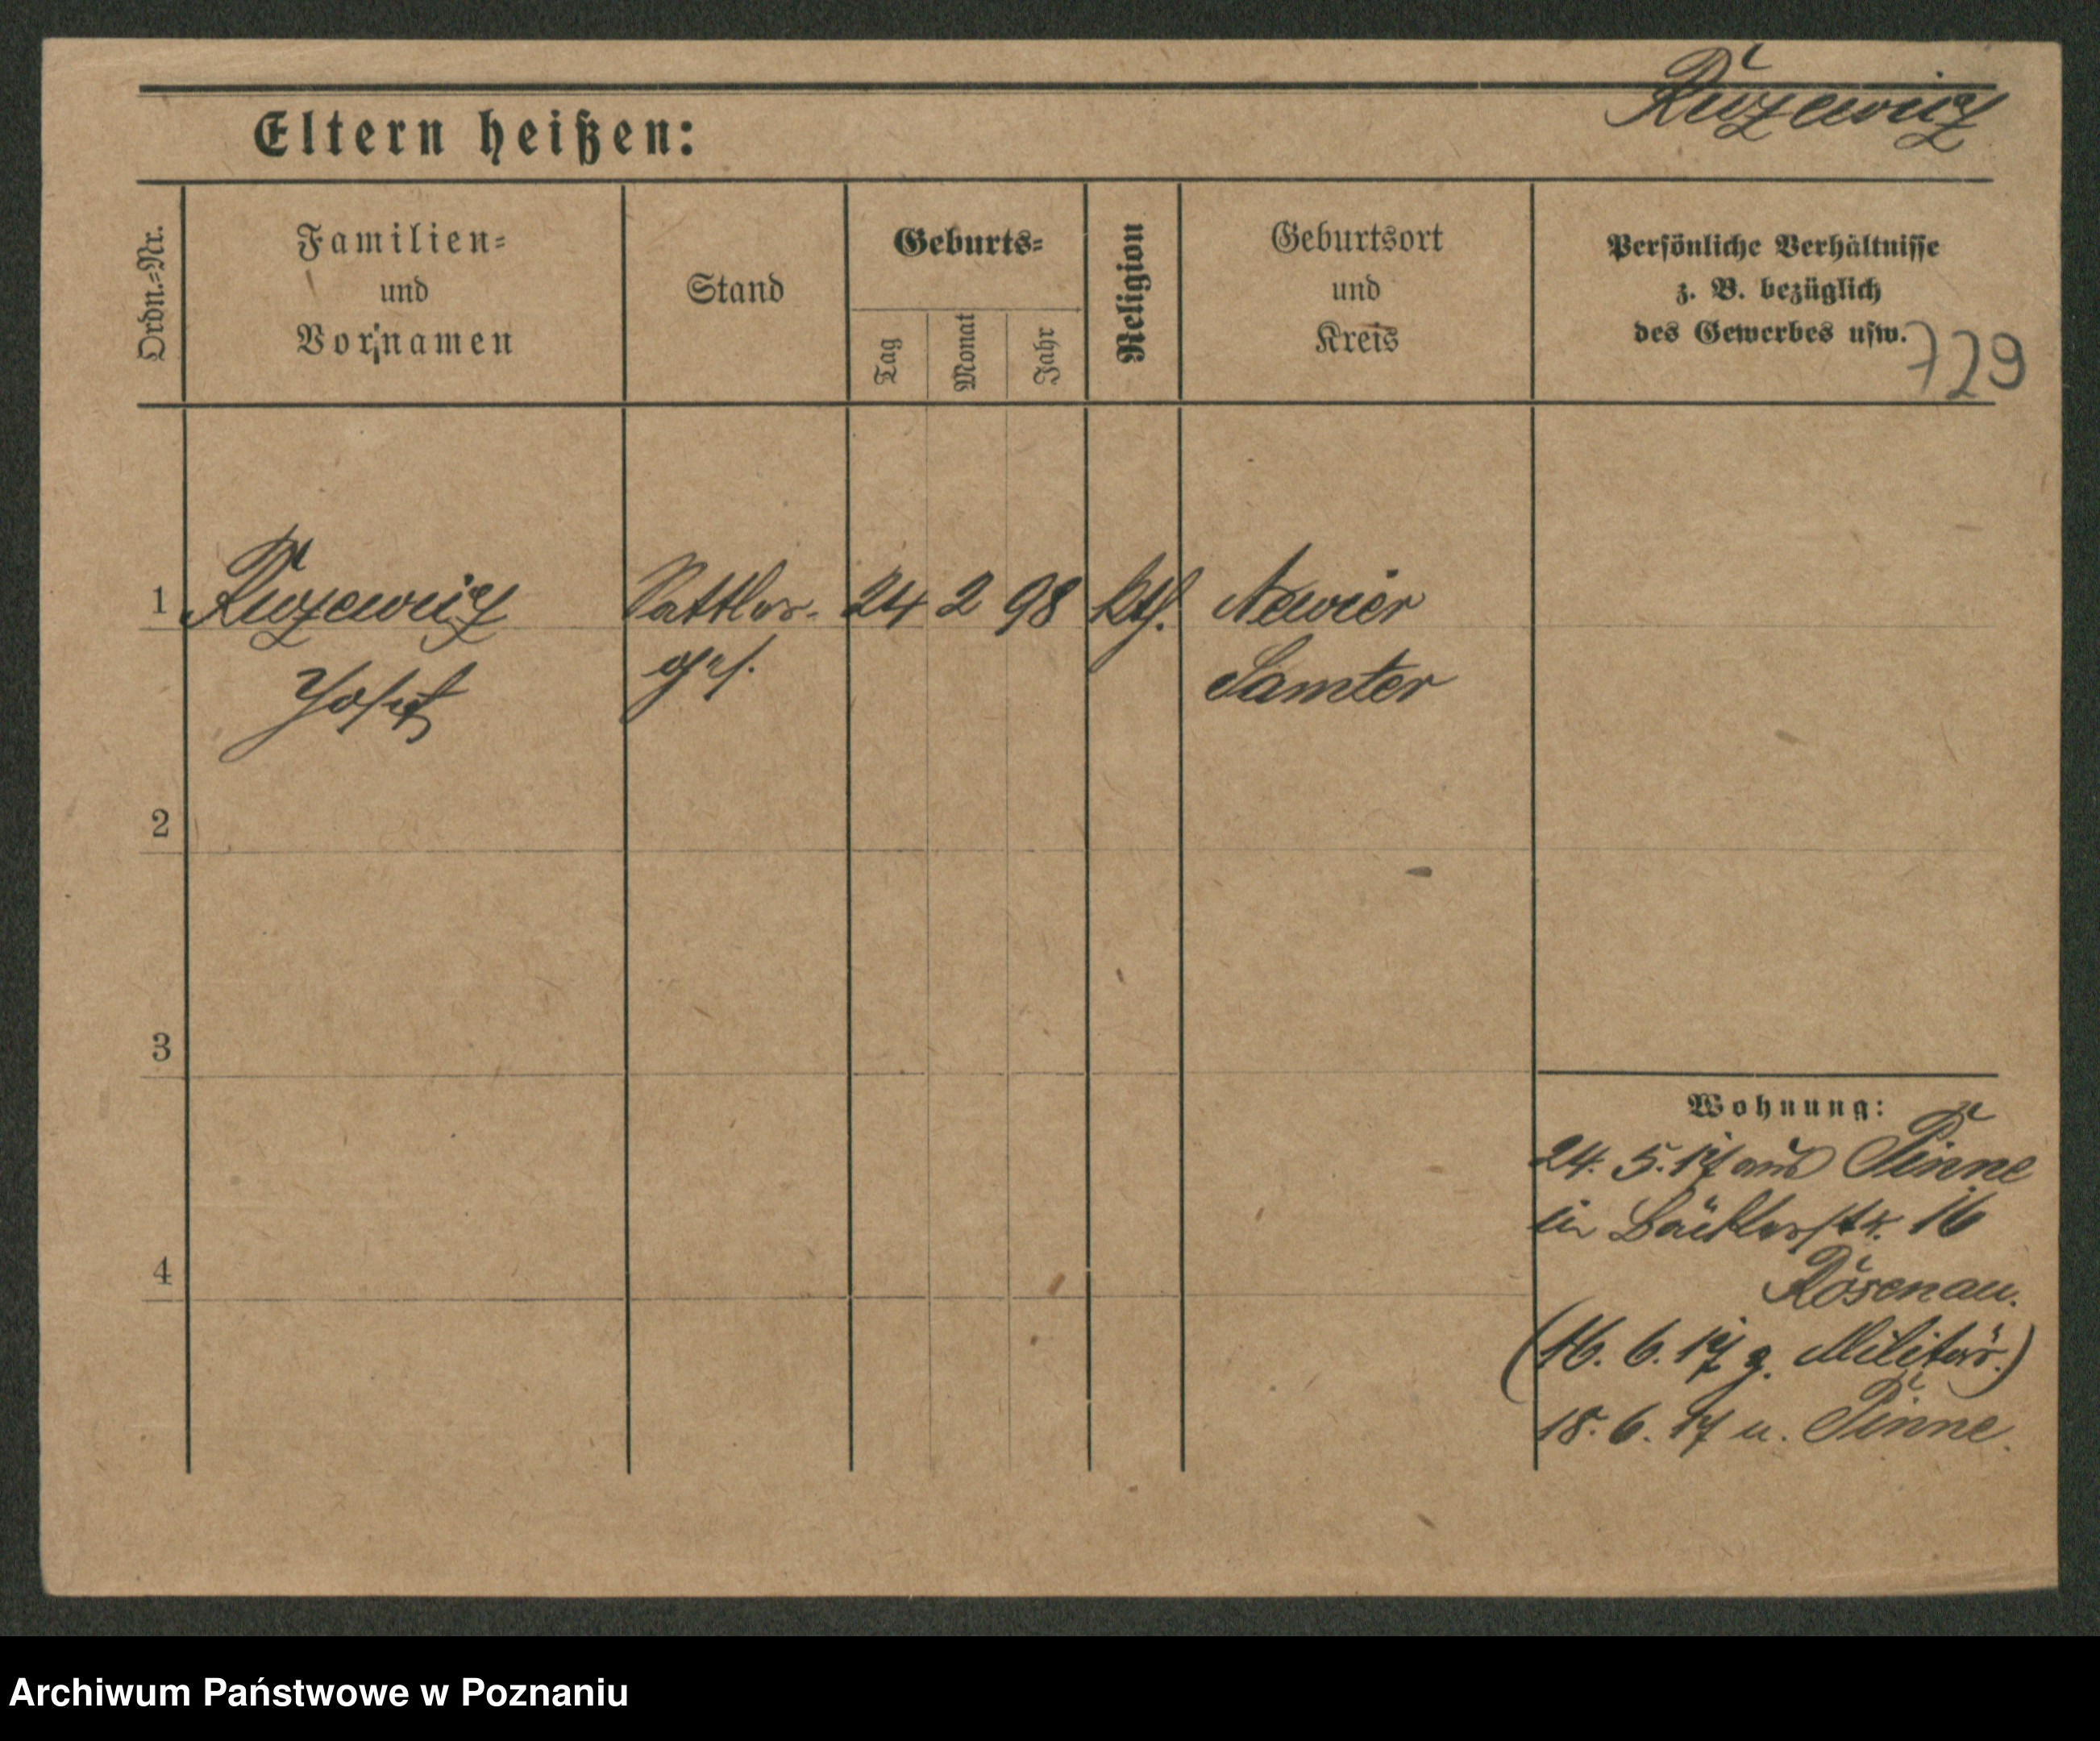 Ruzewicz
Eltern heißen:
Ordn.-Nr.
Familien-
und
Vornamen
Stand
Geburts-
Tag
Monat
Jahr
Religion
Geburtsort
und
Kreis
Persönliche Verhältnisse
z. B. bezüglich
des Gewerbes usw.
729
1 Ruzewicz Sattler- 24 2 98 kth. Newier
Josef ges. Samter
2
3
4
Wohnung:
24. 5. 17 aus Pinne
in Bäckerstr. 16
Rosenau.
(16. 6. 17 z. Militär.)
18. 6. 17 n. Pinne.
Archiwum Państwowe w Poznaniu